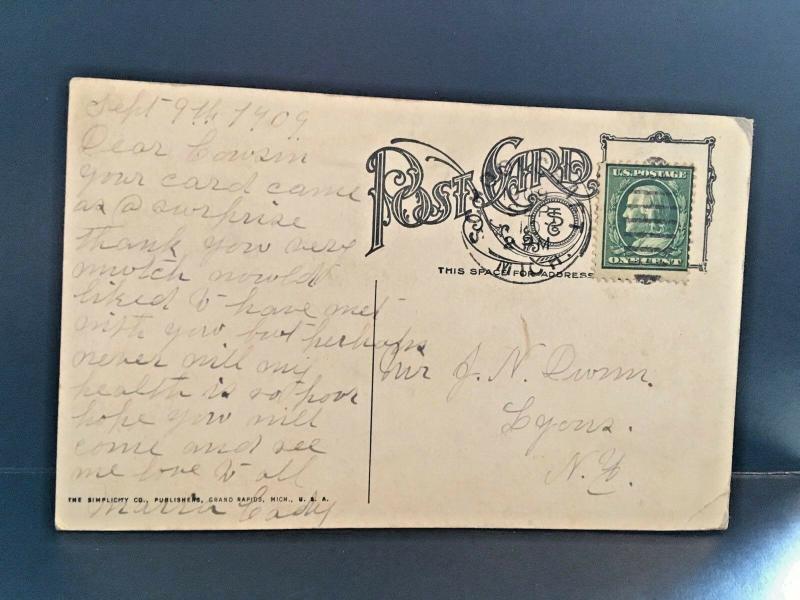 Sept 9th 1909
Dear Cowsin
your card came
as @ surprise
thank you very
mutch would
liked to have met
with you but perhaps
never will my
health is so poor
hope you will
come and see
me love to all
Cady
THE SIMPLICITY CO., PUBLISHERS, GRAND RAPIDS, MICH., U. S. A.
POST CARD
THIS SPACE FOR ADDRESS
U.S. POSTAGE
ONE CENT
PM
MICH.
Mr J. N. Dunn.
Lyons.
N.Y.